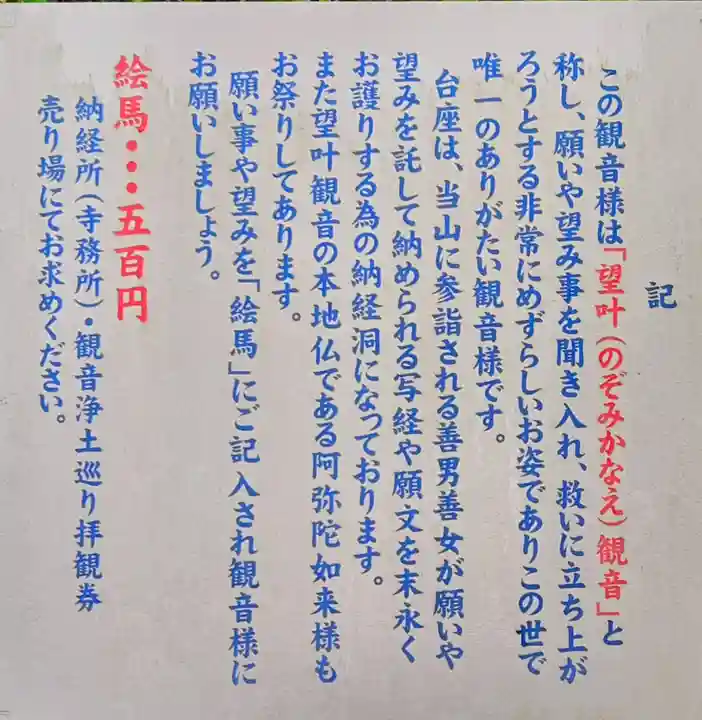 記
この観音様は「望叶（のぞみかなえ）観音」と
称し、願いや望み事を聞き入れ、救いに立ち上が
ろうとする非常にめずらしいお姿でありこの世で
唯一のありがたい観音様です。
台座は、当山に参詣される善男善女が願いや
望みを託して納められる写経や願文を末永く
お護りする為の納経洞になっております。
また望叶観音の本地仏である阿弥陀如来様も
お祭りしてあります。
願い事や望みを「絵馬」にご記入され観音様に
お願いしましょう。
絵馬・・・五百円
納経所（寺務所）・観音浄土巡り拝観券
売り場にてお求めください。